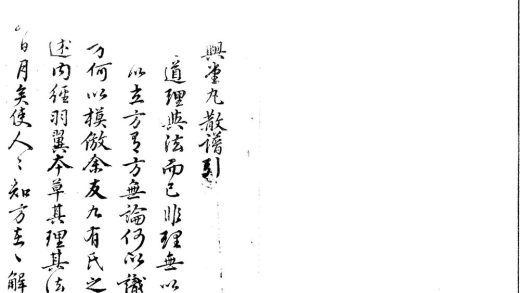 興堂丸散譜引
道理與法而已非理無以
以立方有方無論何以識
方何以模倣余友九有氏之
述内經羽翼本草其理其法
百月矣使人々知方在々解